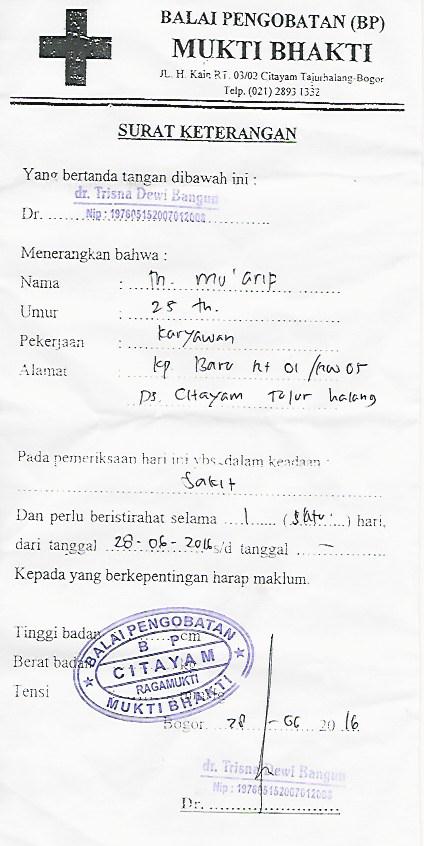 BALAI PENGOBATAN (BP)
MUKTI BHAKTI
JL. H. Kain RT. 03/02 Citayam Tajurhalang-Bogor
Telp. (021) 2893 1332
SURAT KETERANGAN
Yang bertanda tangan dibawah ini :
dr. Trisna Dewi Bangun
Dr. ........
Nip : 197605152007012008
Menerangkan bahwa :
Nama : M. Mu'arif
Umur : 25 th.
Pekerjaan : Karyawan
Alamat : Kp Baru Rt 01 /RW 05
Ds. Citayam Tajur halang
Pada pemeriksaan hari ini ybs. dalam keadaan :
Sakit
Dan perlu beristirahat selama 1 (Satu) hari,
dari tanggal 28-06-2016 s/d tanggal –
Kepada yang berkepentingan harap maklum.
Tinggi badan cm
Berat badan kg
Tensi
BALAI PENGOBATAN
B P
CITAYAM
RAGAMUKTI
MUKTI BHAKTI
Bogor 28 - 06 2016
dr. Trisna Dewi Bangun
Nip : 197605152007012008
Dr. ........